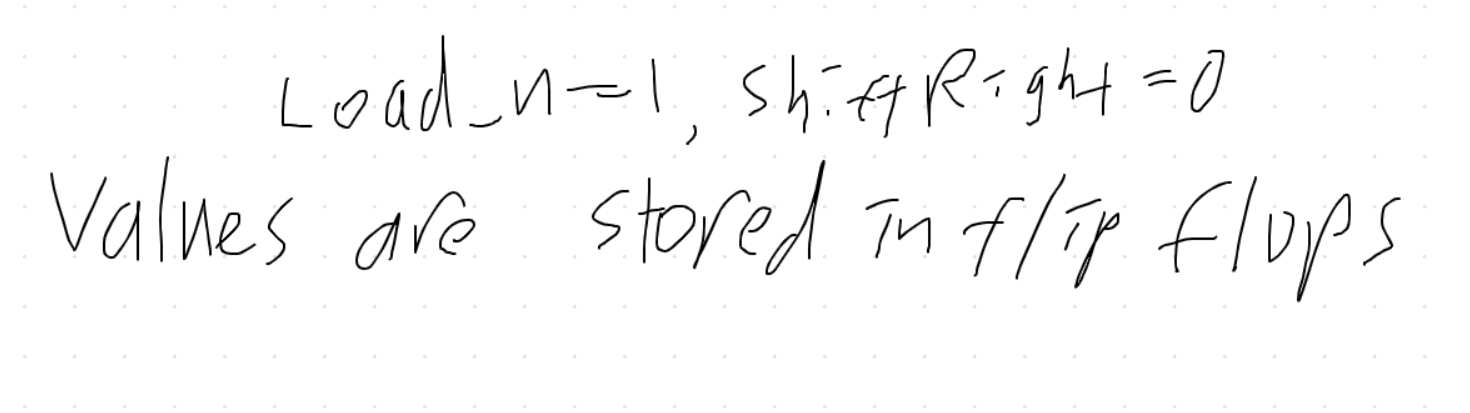 Load_n=1, ShiftRight=0
Values are stored in flip flops